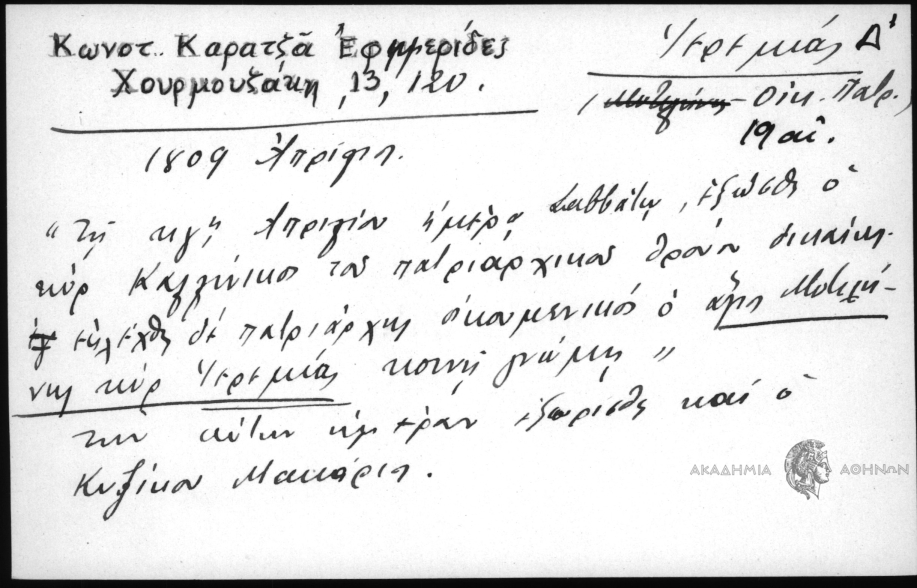 Κωνστ. Καρατζᾶ Ἐφημερίδες
Χουρμουζάκη, 13, 120.
Ἱερεμίας Δ'
Οἰκ. Πατρ.
19 αἰ.
1809 Ἀπρίλη.
"Τῇ κγῃ Ἀπριλίου ἡμέρᾳ Σαββάτῳ, ἐξώσθη ὁ
κύρ Καλλίνικος τοῦ πατριαρχικοῦ θρόνου
ἐκλέχθη δέ πατριάρχης οἰκουμενικός ὁ ἅγιος Μυτιλή-
νης κύρ Ἱερεμίας κοινῇ γνώμῃ "
την αὐτην ἡμέραν ἐξωρίσθη καί ὁ
Κυζίκου Μακάριος.
ΑΚΑΔΗΜΙΑ ΑΘΗΝΩΝ